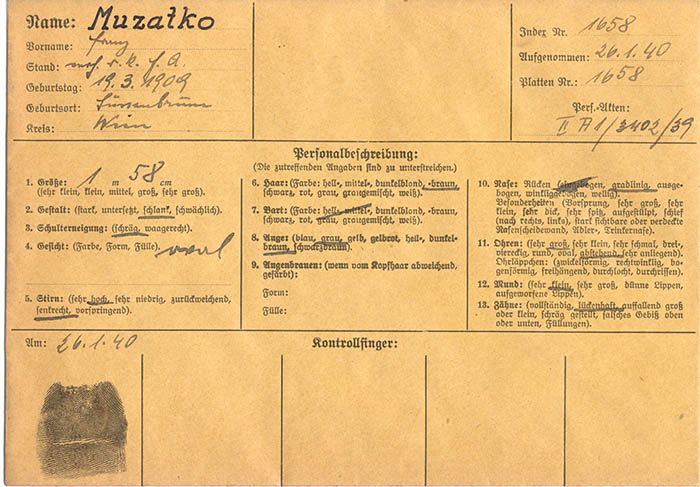 Name: Muzatko
Vorname: Franz
Stand:
Geburtstag: 19.3.1909
Geburtsort: Süssenbrunn
Kreis: Wien
Index Nr. 1658
Aufgenommen: 26.1.40
Platten Nr.: 1658
Pers.-Akten:
II A1/3402/39
Personalbeschreibung:
(Die zutreffenden Angaben sind zu unterstreichen.)
1. Größe: 1 m 58 cm
(sehr klein, klein, mittel, groß, sehr groß).
2. Gestalt: (stark, untersetzt, schlank, schwächlich).
3. Schulterneigung: (schräg, waagerecht).
4. Gesicht: (Farbe, Form, Fülle). oval
5. Stirn: (sehr hoch, sehr niedrig, zurückweichend,
senkrecht, vorspringend).
6. Haar: (Farbe: hell-, mittel-, dunkelblond, -braun,
schwarz, rot, grau, graugemischt, weiß).
7. Bart: (Farbe: hell-, mittel-, dunkelblond, -braun,
schwarz, rot, grau, graugemischt, weiß).
8. Auge: (blau, grau, gelb, gelbrot, hell-, dunkel-
braun, schwarzbraun).
9. Augenbrauen: (wenn vom Kopfhaar abweichend,
gefärbt):
Form:
Fülle:
10. Nase: Rücken (eingebogen, gradlinig, ausge-
bogen, winkliggebogen, wellig).
Besonderheiten (Vorsprung, sehr groß, sehr
klein, sehr dick, sehr spitz, aufgestülpt, schief
(nach rechts, links), stark sichtbare oder verdeckte
Nasenscheidewand, Adler-, Trinkernase).
11. Ohren: (sehr groß, sehr klein, sehr schmal, drei-,
viereckig, rund, oval, abstehend, sehr anliegend).
Ohrläppchen: (zwickelförmig, rechtwinklig, bo-
genförmig, freihängend, durchlocht, durchrissen).
12. Mund: (sehr klein, sehr groß, dünne Lippen,
aufgeworfene Lippen).
13. Zähne: (vollständig, lückenhaft, auffallend groß
oder klein, schräg gestellt, falsches Gebiß oben
oder unten, Füllungen).
Am: 26.1.40
Kontrollfinger: